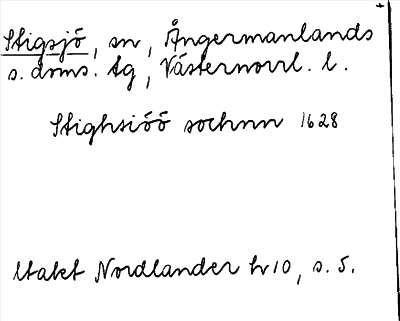 Stigsjö, sn, Ångermanlands
s. doms. tg, Västernorrl. l.
Stighsiöö sochnn 1628
Utakt Nordlander hv 10, s. 5.